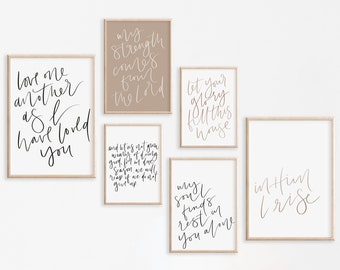 love one
another
as I
have loved
you
my
strength
comes
from
the Lord
let your
glory
fill this
house
and let us not grow
weary of doing
good, for in due
season we will
reap if we do not
give up
my
soul
finds
rest in
you alone
in Him
I rise